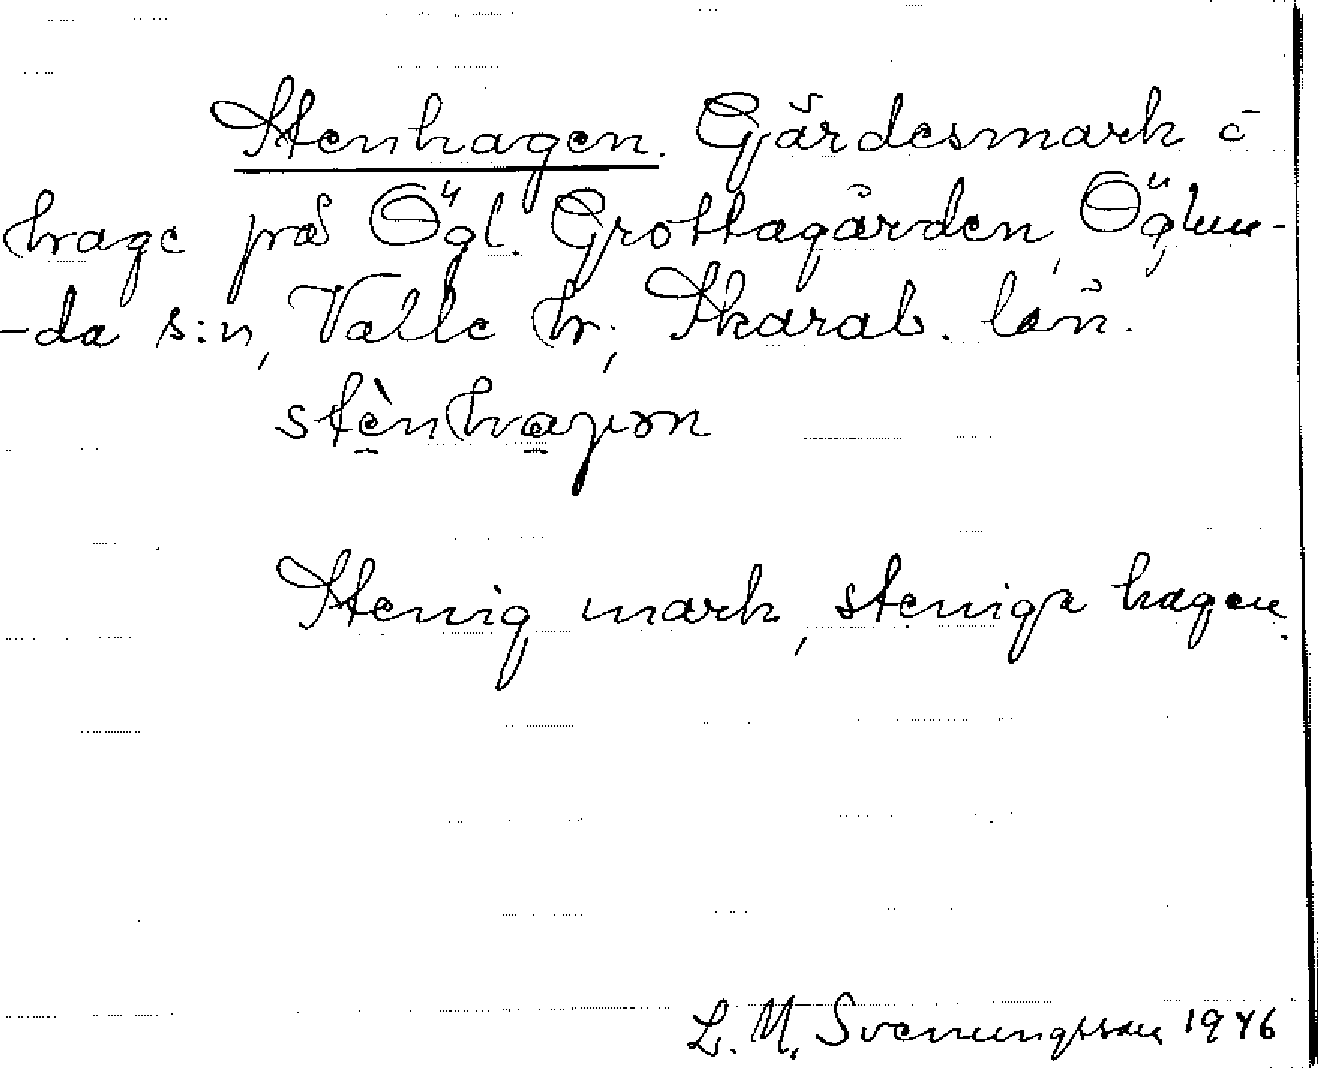 Stenhagen. Gärdesmark o
hage på Ögl. Grottagården, Öglun-
-da s:n, Valle hr, Skarab. län.
stènhaꞬɷn
Stenig mark, steniga hagen.
L. M. Svenungsson 1946